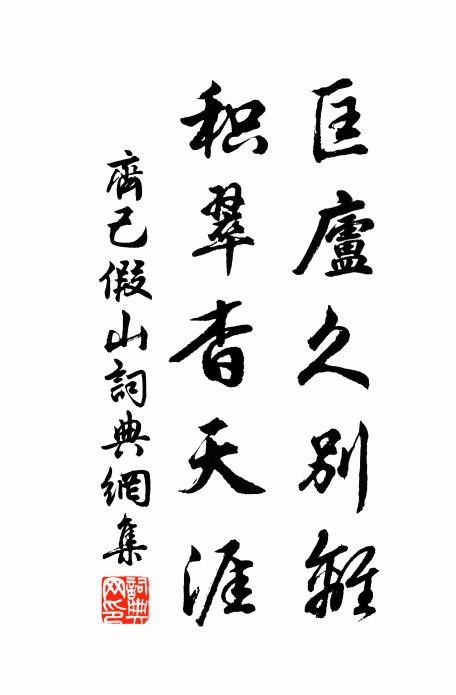 匡廬久別離
积翠杳天涯
齊己假山詞典網集
詞典网印